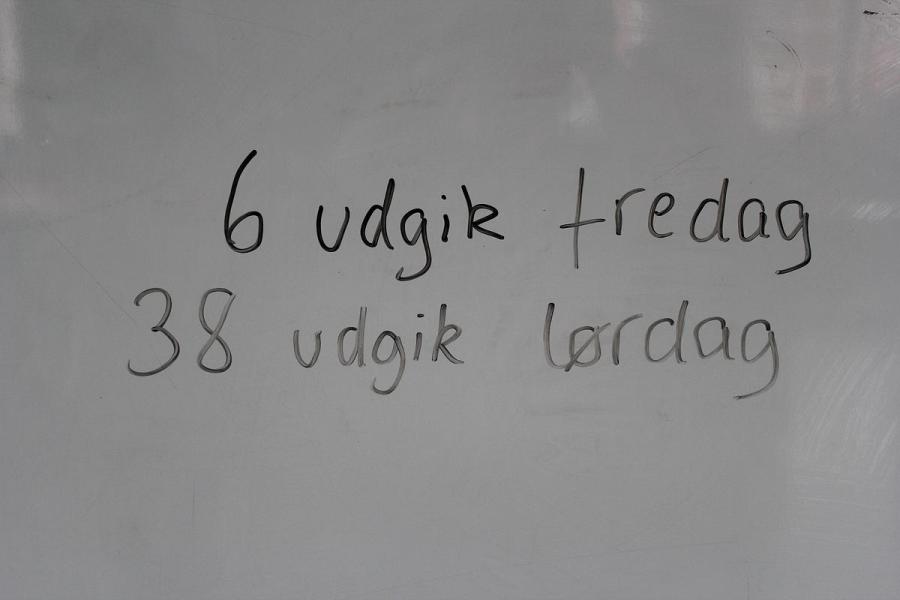 6 udgik fredag
38 udgik lørdag